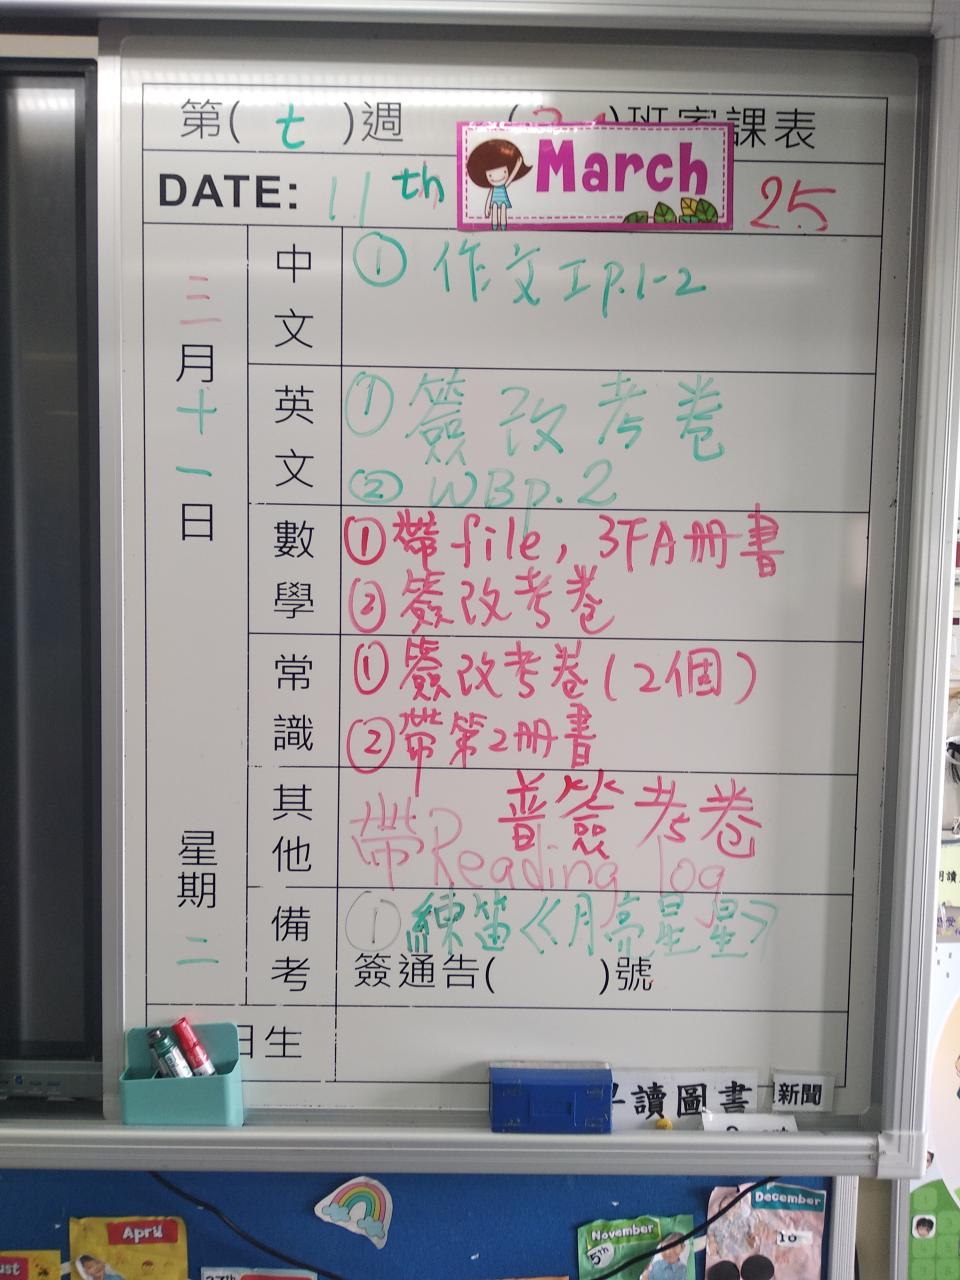 第( 七 )週 ( )班家課表
DATE: 11th March 25
三月十一日
星期二
中文
① 作文工P.1-2
英文
① 簽改考卷
② WBp.2
數學
① 帶file, 3下A冊書
② 簽改考卷
常識
① 簽改考卷(2個)
② 帶第2冊書
其他
普簽考卷
帶Reading log
備考
① 練笛《月亮星星》
簽通告( )號
日生
讀圖書
新聞
April
November
5th
December
16